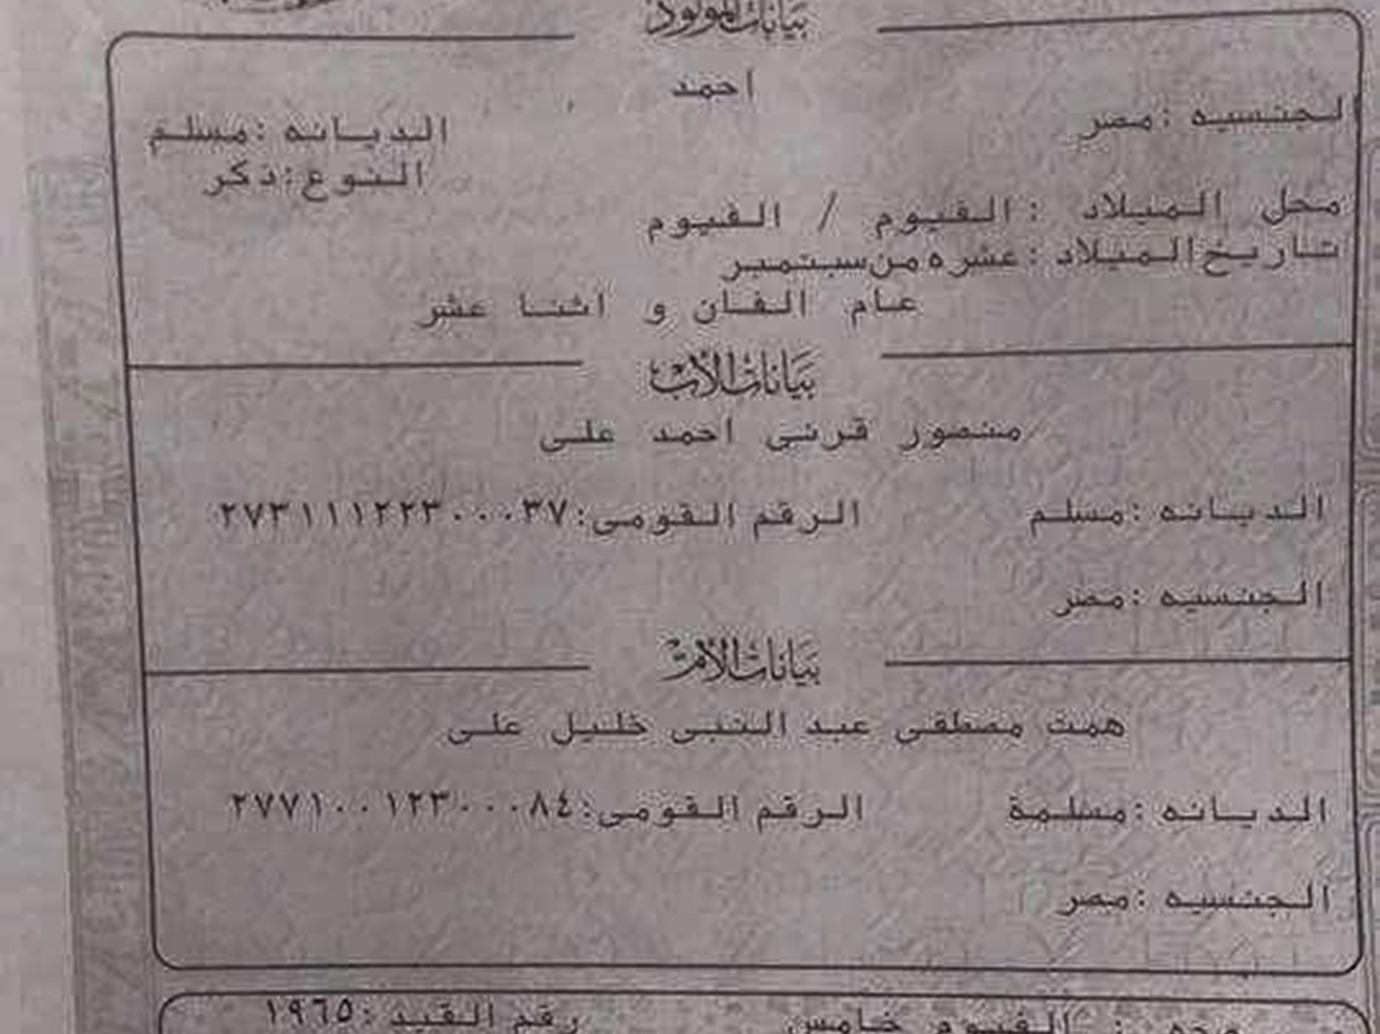 بيانات المولود
احمد
الجنسيه : مصر
الديانه : مسلم
النوع : ذكر
محل الميلاد : الفيوم / الفيوم
تاريخ الميلاد : عشره من سبتمبر
عام الفان و اثنا عشر
بيانات الأب
منصور قرنى احمد على
الديانه : مسلم الرقم القومى : ٢٧٣١١١٢٢٣٠٠٠٣٧
الجنسيه : مصر
بيانات الأم
همت مصطفى عبد النبى خليل على
الديانه : مسلمة الرقم القومى : ٢٧٧١٠٠١٢٣٠٠٠٨٤
الجنسيه : مصر
الفيوم خامس رقم القيد : ١٩٦٥